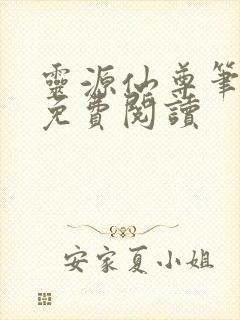 靈源仙尊筆
免費閱讀
安家夏小姐